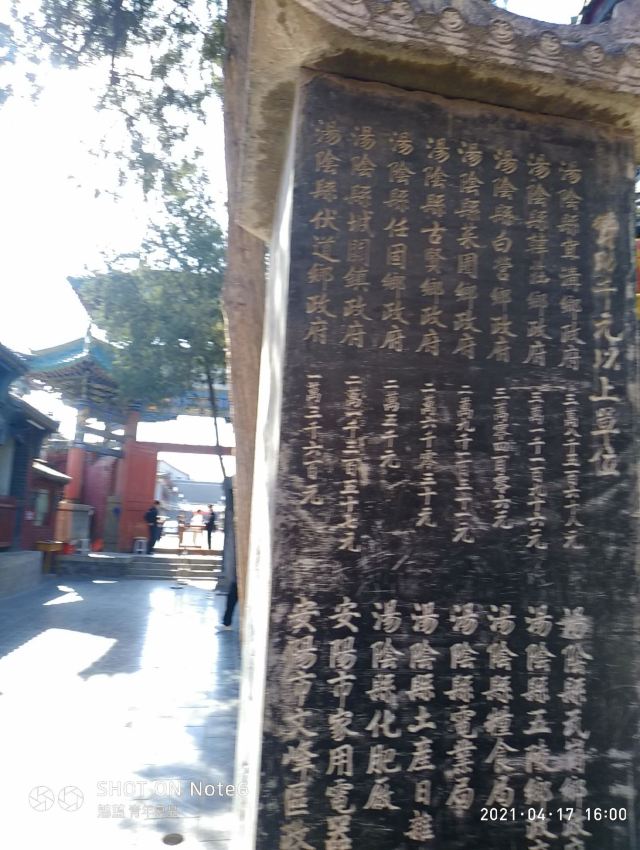 千元以上單位
湯陰縣宜溝鄉政府
湯陰縣韓莊鄉政府
湯陰縣白營鄉政府
湯陰縣菜園鄉政府
湯陰縣古賢鄉政府
湯陰縣任固鄉政府
湯陰縣城關鎮政府
湯陰縣伏道鄉政府
二萬九千一百三十元
二萬六千零三十元
二萬三千元
二萬一千二百三十七元
一萬三千六百元
湯陰縣瓦崗鄉政
湯陰縣五陵鄉政府
湯陰縣糧食局
湯陰縣電業局
湯陰縣土產日雜
湯陰縣化肥廠
安陽市家用電器
安陽市文峰區政
SHOT ON Note6
2021.04.17 16:00